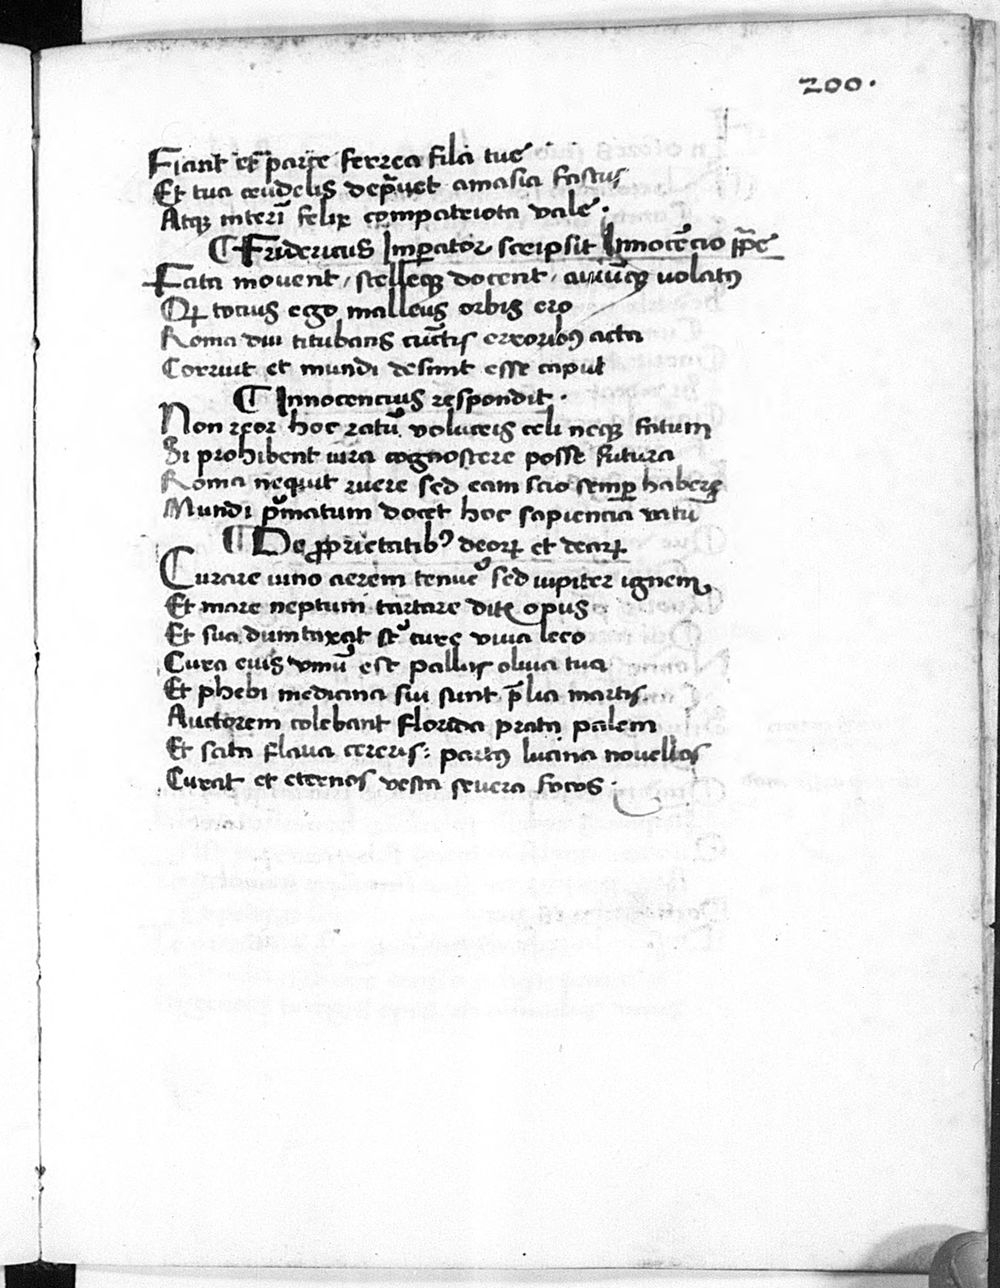 200.
Fiant et parce ferrea fila tue
Et tua crudelis dep̄uet amasia fastus
Atqꝫ interī felix compatriota vale.
¶ Fridericus Imꝑator scripsit Innocēcio pp̄e
Fata movent / stelleqꝫ docent / aviūqꝫ volatꝰ
Qꝙ totius ego malleus orbis ero
Roma diu titubans cūctis erroribꝰ acta
Corruit et mundi desinit esse caput
¶ Innocencius respondit.
Non reor hoc ratū volucris celi neqꝫ fatum
Si prohibent iura cognoscere posse futura
Roma nequit ruere sed eam scio semꝑ habere
Mundi p̄matum docet hoc sapiencia vatū
¶ De ꝓprietatibꝰ deoꝝ et deaꝝ
Curare iuno aerem tenue sed iupiter ignem
Et mare neptun tartare ditis opus
Et sua dumtaxat st cure viua leco
Cura cuis vinū est pallas oliua tua
Et phebi medicina sui sunt p̄lia martis
Auctorem colebant florida prata palem
Et sata flaua cereris: partꝰ lucina nouellos
Curat et eternos vesta severa focos.